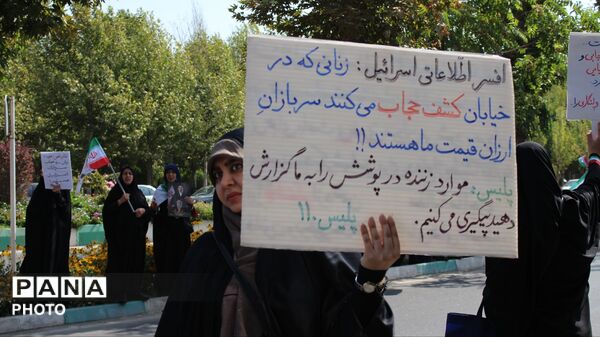 افسر اطلاعاتی اسرائیل: زنانی که در
خیابان کشف حجاب می‌کنند سربازانِ
ارزان قیمت ما هستند!!
پلیس: موارد زننده در پوشش را به ما گزارش
دهید پیگیری می‌کنیم.
پلیس..!!
PANA
PHOTO